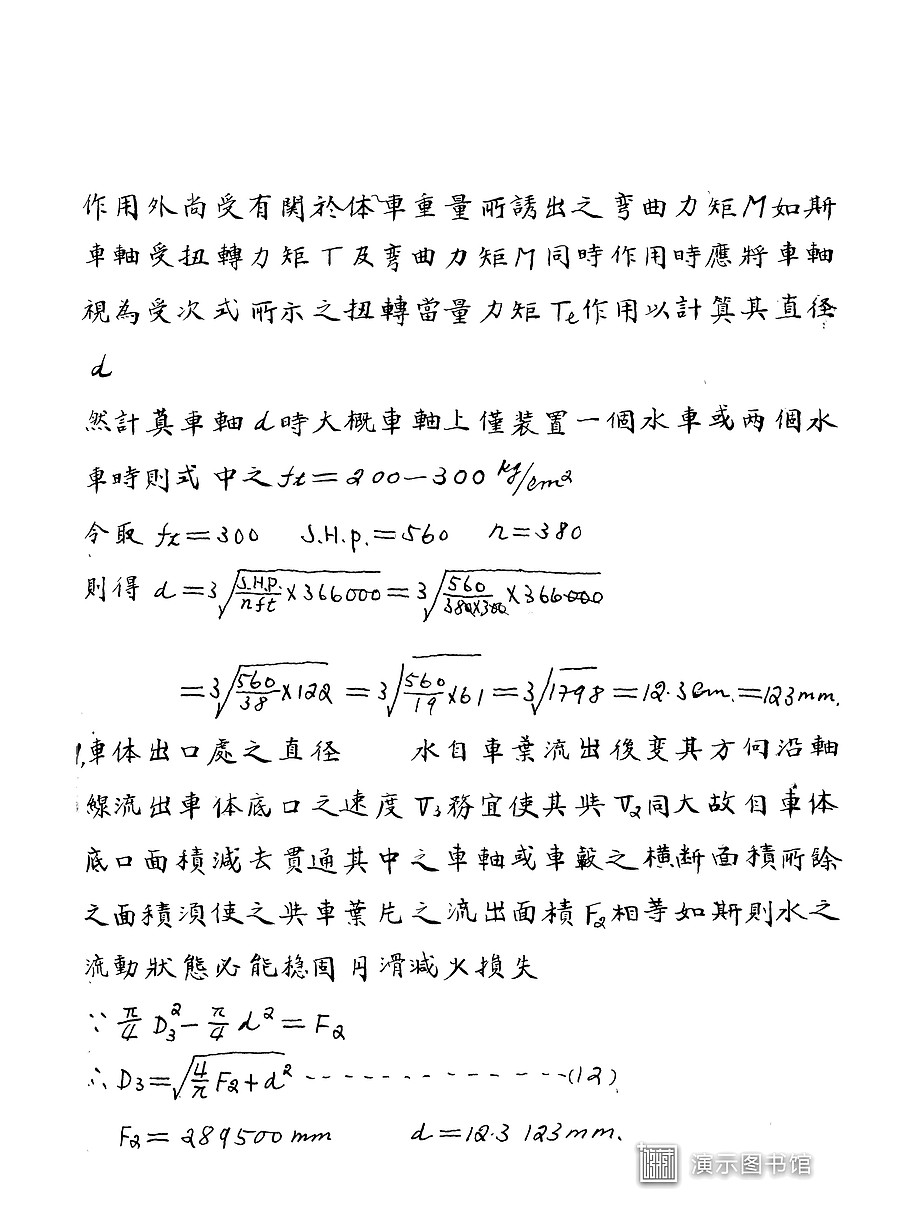 作用外尚受有関於体車重量所誘出之弯曲力矩M如斯
車軸受扭轉力矩T及弯曲力矩M同時作用時應將車軸
視為受次式所示之扭轉當量力矩Te作用以計算其直径
d
然計算車軸d時大概車軸上僅装置一個水車或两個水
車時則式中之ft=200—300 kg/cm2
令取 ft=300 S.H.p.=560 n=380
則得 d=3√(S.H.P./nft ×366000)=3√(560/380×300 ×366000)
=3√(560/38 ×122)=3√(560/19 ×61)=3√1798=12.3cm.=123mm.
車体出口處之直径 水自車葉流出後变其方向沿軸
線流出車体底口之速度V3務宜使其與V2同大故自車体
底口面積減去貫通其中之車軸或車轂之横断面積所餘
之面積須使之與車葉片之流出面積F2相等如斯則水之
流動狀態必能穏固円滑減火損失
∵ π/4 D3²−π/4 d²=F2
∴ D3=√(4/π F2+d²) ------------(12)
F2=289500mm d=12.3 123mm.
演示图书馆